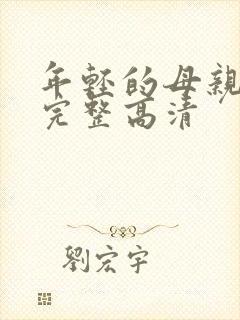 年轻的母亲
完整高清
劉宏宇